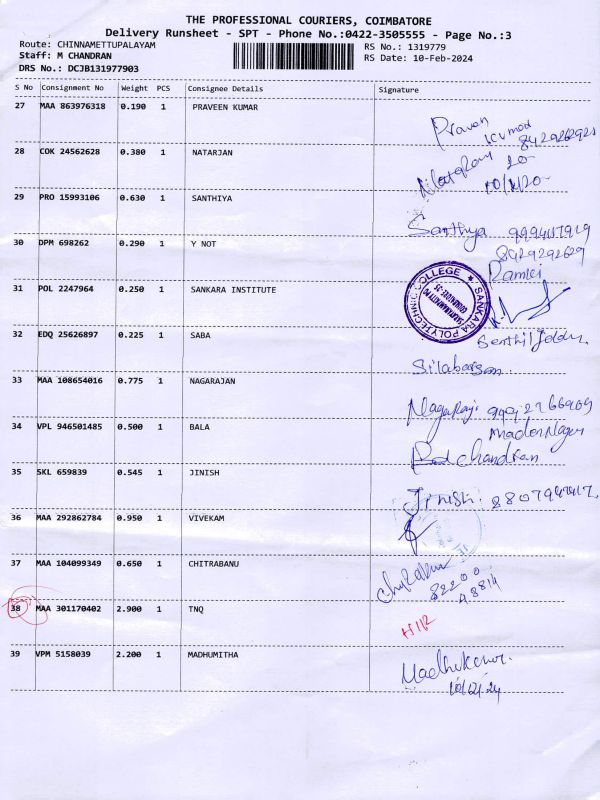 THE PROFESSIONAL COURIERS, COIMBATORE
Delivery Runsheet - SPT - Phone No.:0422-3505555 - Page No.:3
Route: CHINNAMETTUPALAYAM
Staff: M CHANDRAN
DRS No.: DCJB131977903
RS No.: 1319779
RS Date: 10-Feb-2024
S No Consignment No Weight PCS Consignee Details Signature
27 MAA 863976318 0.190 1 PRAVEEN KUMAR
Praven
Kumar
28 COK 24562628 0.380 1 NATARJAN
29 PRO 15993106 0.630 1 SANTHIYA
Santhiya
30 DPM 698262 0.290 1 Y NOT
8429292629
31 POL 2247964 0.250 1 SANKARA INSTITUTE
SANKARA POLYTECHNIC COLLEGE
32 EDQ 25626897 0.225 1 SABA
33 MAA 108654016 0.775 1 NAGARAJAN
Nagaraj
34 VPL 946501485 0.500 1 BALA
chandran
35 SKL 659839 0.545 1 JINISH
Jinish.
36 MAA 292862784 0.950 1 VIVEKAM
37 MAA 104099349 0.650 1 CHITRABANU
82200
48814
38 MAA 301170402 2.900 1 TNQ
39 VPM 5158039 2.200 1 MADHUMITHA